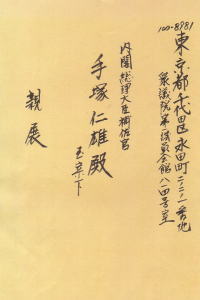 100-8981
東京都千代田区永田町2-2-1番地
衆議院第一議員会館八一四号室
内閣総理大臣補佐官
手塚仁雄殿
玉案下
親展